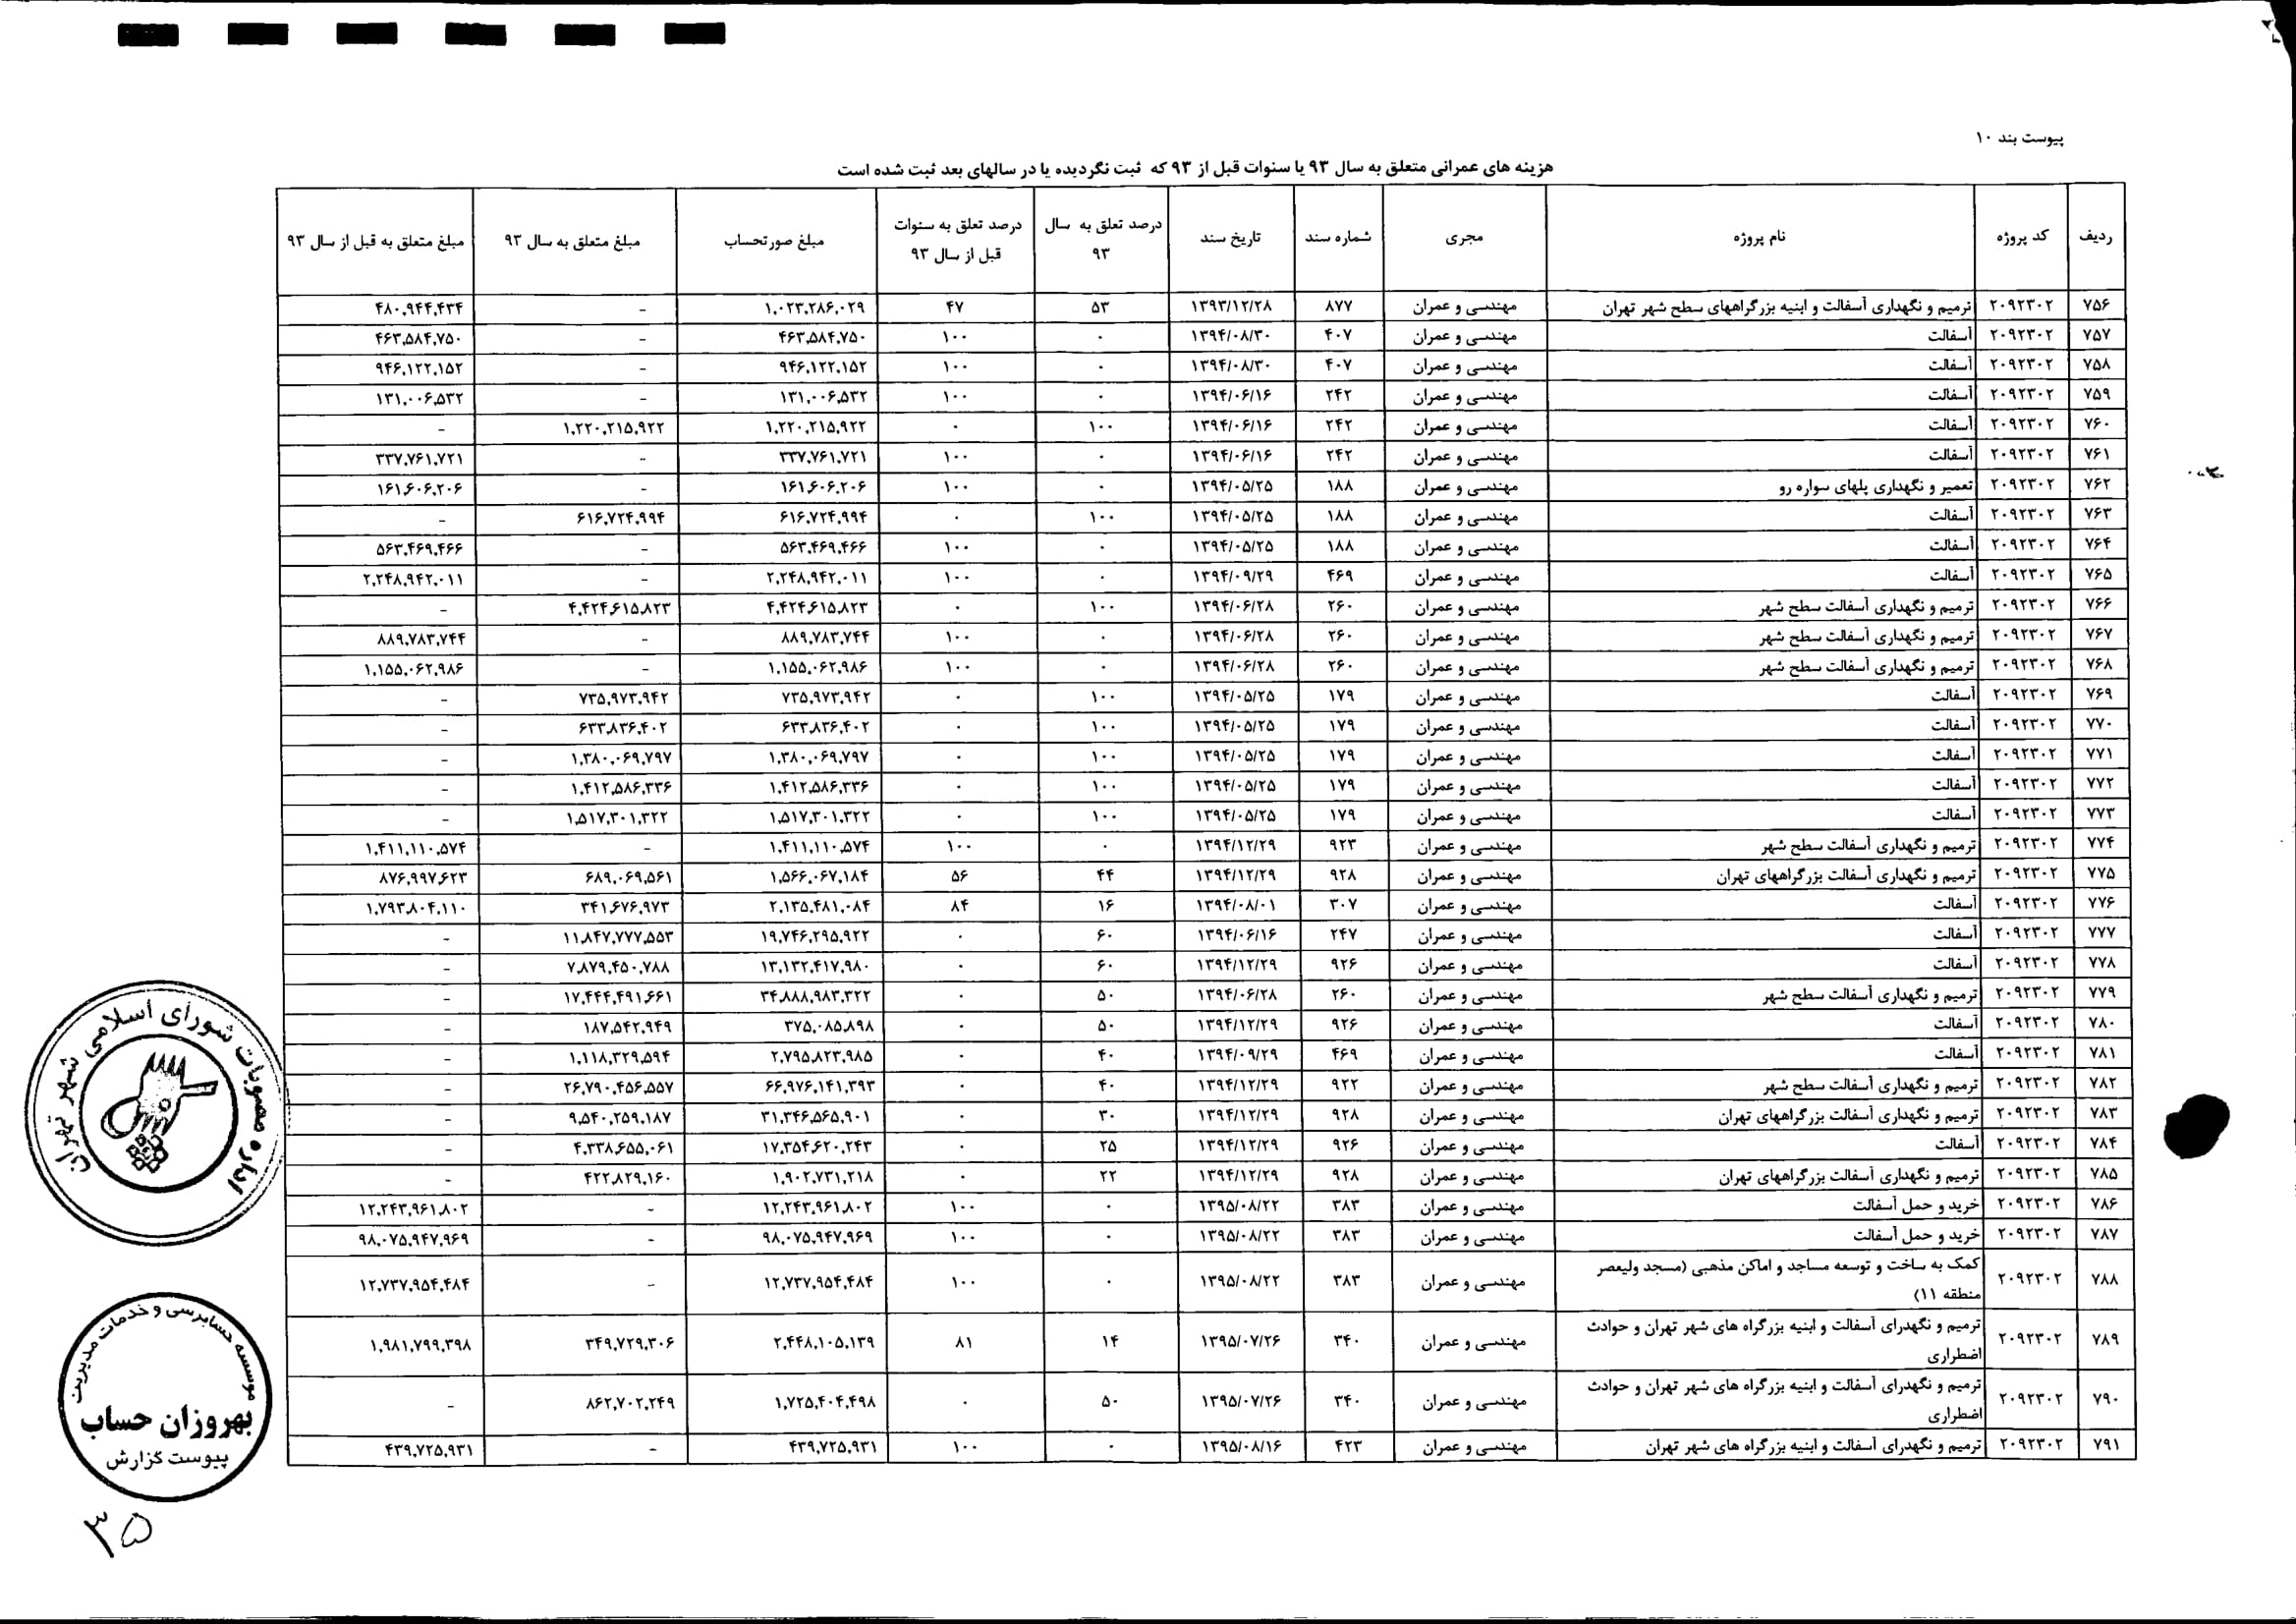 پیوست بند ۱۰
هزینه های عمرانی متعلق به سال ۹۳ یا سنوات قبل از ۹۳ که ثبت نگردیده یا در سالهای بعد ثبت شده است
ردیف کد پروژه نام پروژه مجری شماره سند تاریخ سند درصد تعلق به سال ۹۳ درصد تعلق به سنوات قبل از سال ۹۳ مبلغ صورتحساب مبلغ متعلق به سال ۹۳ مبلغ متعلق به قبل از سال ۹۳
۷۵۶ ۲۰۹۲۳۰۲ ترمیم و نگهداری آسفالت و ابنیه بزرگراههای سطح شهر تهران مهندسی و عمران ۸۷۷ ۱۳۹۳/۱۲/۲۸ ۵۳ ۴۷ ۱,۰۲۳,۲۸۶,۰۲۹ - ۴۸۰,۹۴۴,۴۳۴
۷۵۷ ۲۰۹۲۳۰۲ آسفالت مهندسی و عمران ۴۰۷ ۱۳۹۴/۰۸/۳۰ ۰ ۱۰۰ ۴۶۳,۵۸۴,۷۵۰ - ۴۶۳,۵۸۴,۷۵۰
۷۵۸ ۲۰۹۲۳۰۲ آسفالت مهندسی و عمران ۴۰۷ ۱۳۹۴/۰۸/۳۰ ۰ ۱۰۰ ۹۴۶,۱۲۲,۱۵۲ - ۹۴۶,۱۲۲,۱۵۲
۷۵۹ ۲۰۹۲۳۰۲ آسفالت مهندسی و عمران ۲۴۲ ۱۳۹۴/۰۶/۱۶ ۰ ۱۰۰ ۱۳۱,۰۰۶,۵۳۲ - ۱۳۱,۰۰۶,۵۳۲
۷۶۰ ۲۰۹۲۳۰۲ آسفالت مهندسی و عمران ۲۴۲ ۱۳۹۴/۰۶/۱۶ ۱۰۰ ۰ ۱,۲۲۰,۲۱۵,۹۲۲ ۱,۲۲۰,۲۱۵,۹۲۲ -
۷۶۱ ۲۰۹۲۳۰۲ آسفالت مهندسی و عمران ۲۴۲ ۱۳۹۴/۰۶/۱۶ ۰ ۱۰۰ ۳۳۷,۷۶۱,۷۲۱ - ۳۳۷,۷۶۱,۷۲۱
۷۶۲ ۲۰۹۲۳۰۲ تعمیر و نگهداری پلهای سواره رو مهندسی و عمران ۱۸۸ ۱۳۹۴/۰۵/۲۵ ۰ ۱۰۰ ۱۶۱,۶۰۶,۲۰۶ - ۱۶۱,۶۰۶,۲۰۶
۷۶۳ ۲۰۹۲۳۰۲ آسفالت مهندسی و عمران ۱۸۸ ۱۳۹۴/۰۵/۲۵ ۱۰۰ ۰ ۶۱۶,۷۲۴,۹۹۴ ۶۱۶,۷۲۴,۹۹۴ -
۷۶۴ ۲۰۹۲۳۰۲ آسفالت مهندسی و عمران ۱۸۸ ۱۳۹۴/۰۵/۲۵ ۰ ۱۰۰ ۵۶۳,۴۶۹,۴۶۶ - ۵۶۳,۴۶۹,۴۶۶
۷۶۵ ۲۰۹۲۳۰۲ آسفالت مهندسی و عمران ۴۶۹ ۱۳۹۴/۰۹/۲۹ ۰ ۱۰۰ ۲,۲۴۸,۹۴۲,۰۱۱ - ۲,۲۴۸,۹۴۲,۰۱۱
۷۶۶ ۲۰۹۲۳۰۲ ترمیم و نگهداری آسفالت سطح شهر مهندسی و عمران ۲۶۰ ۱۳۹۴/۰۶/۲۸ ۱۰۰ ۰ ۴,۴۲۴,۶۱۵,۸۲۳ ۴,۴۲۴,۶۱۵,۸۲۳ -
۷۶۷ ۲۰۹۲۳۰۲ ترمیم و نگهداری آسفالت سطح شهر مهندسی و عمران ۲۶۰ ۱۳۹۴/۰۶/۲۸ ۰ ۱۰۰ ۸۸۹,۷۸۳,۷۴۴ - ۸۸۹,۷۸۳,۷۴۴
۷۶۸ ۲۰۹۲۳۰۲ ترمیم و نگهداری آسفالت سطح شهر مهندسی و عمران ۲۶۰ ۱۳۹۴/۰۶/۲۸ ۰ ۱۰۰ ۱,۱۵۵,۰۶۲,۹۸۶ - ۱,۱۵۵,۰۶۲,۹۸۶
۷۶۹ ۲۰۹۲۳۰۲ آسفالت مهندسی و عمران ۱۷۹ ۱۳۹۴/۰۵/۲۵ ۱۰۰ ۰ ۷۳۵,۹۷۳,۹۴۲ ۷۳۵,۹۷۳,۹۴۲ -
۷۷۰ ۲۰۹۲۳۰۲ آسفالت مهندسی و عمران ۱۷۹ ۱۳۹۴/۰۵/۲۵ ۱۰۰ ۰ ۶۳۳,۸۳۶,۴۰۲ ۶۳۳,۸۳۶,۴۰۲ -
۷۷۱ ۲۰۹۲۳۰۲ آسفالت مهندسی و عمران ۱۷۹ ۱۳۹۴/۰۵/۲۵ ۱۰۰ ۰ ۱,۳۸۰,۰۶۹,۷۹۷ ۱,۳۸۰,۰۶۹,۷۹۷ -
۷۷۲ ۲۰۹۲۳۰۲ آسفالت مهندسی و عمران ۱۷۹ ۱۳۹۴/۰۵/۲۵ ۱۰۰ ۰ ۱,۴۱۲,۵۸۶,۳۳۶ ۱,۴۱۲,۵۸۶,۳۳۶ -
۷۷۳ ۲۰۹۲۳۰۲ آسفالت مهندسی و عمران ۱۷۹ ۱۳۹۴/۰۵/۲۵ ۱۰۰ ۰ ۱,۵۱۷,۳۰۱,۳۲۲ ۱,۵۱۷,۳۰۱,۳۲۲ -
۷۷۴ ۲۰۹۲۳۰۲ ترمیم و نگهداری آسفالت سطح شهر مهندسی و عمران ۹۲۳ ۱۳۹۴/۱۲/۲۹ ۰ ۱۰۰ ۱,۴۱۱,۱۱۰,۵۷۴ - ۱,۴۱۱,۱۱۰,۵۷۴
۷۷۵ ۲۰۹۲۳۰۲ ترمیم و نگهداری آسفالت بزرگراههای تهران مهندسی و عمران ۹۲۸ ۱۳۹۴/۱۲/۲۹ ۴۴ ۵۶ ۱,۵۶۶,۰۶۷,۱۸۴ ۶۸۹,۰۶۹,۵۶۱ ۸۷۶,۹۹۷,۶۲۳
۷۷۶ ۲۰۹۲۳۰۲ آسفالت مهندسی و عمران ۳۰۷ ۱۳۹۴/۰۸/۰۱ ۱۶ ۸۴ ۲,۱۳۵,۴۸۱,۰۸۴ ۳۴۱,۶۷۶,۹۷۳ ۱,۷۹۳,۸۰۴,۱۱۰
۷۷۷ ۲۰۹۲۳۰۲ آسفالت مهندسی و عمران ۲۴۷ ۱۳۹۴/۰۶/۱۶ ۶۰ ۰ ۱۹,۷۴۶,۲۹۵,۹۲۲ ۱۱,۸۴۷,۷۷۷,۵۵۳ -
۷۷۸ ۲۰۹۲۳۰۲ آسفالت مهندسی و عمران ۹۲۶ ۱۳۹۴/۱۲/۲۹ ۶۰ ۰ ۱۳,۱۳۲,۴۱۷,۹۸۰ ۷,۸۷۹,۴۵۰,۷۸۸ -
۷۷۹ ۲۰۹۲۳۰۲ ترمیم و نگهداری آسفالت سطح شهر مهندسی و عمران ۲۶۰ ۱۳۹۴/۰۶/۲۸ ۵۰ ۰ ۳۴,۸۸۸,۹۸۳,۳۲۲ ۱۷,۴۴۴,۴۹۱,۶۶۱ -
۷۸۰ ۲۰۹۲۳۰۲ آسفالت مهندسی و عمران ۹۲۶ ۱۳۹۴/۱۲/۲۹ ۵۰ ۰ ۳۷۵,۰۸۵,۸۹۸ ۱۸۷,۵۴۲,۹۴۹ -
۷۸۱ ۲۰۹۲۳۰۲ آسفالت مهندسی و عمران ۴۶۹ ۱۳۹۴/۰۹/۲۹ ۴۰ ۰ ۲,۷۹۵,۸۲۳,۹۸۵ ۱,۱۱۸,۳۲۹,۵۹۴ -
۷۸۲ ۲۰۹۲۳۰۲ ترمیم و نگهداری آسفالت سطح شهر مهندسی و عمران ۹۲۲ ۱۳۹۴/۱۲/۲۹ ۴۰ ۰ ۶۶,۹۷۶,۱۴۱,۳۹۳ ۲۶,۷۹۰,۴۵۶,۵۵۷ -
۷۸۳ ۲۰۹۲۳۰۲ ترمیم و نگهداری آسفالت بزرگراههای تهران مهندسی و عمران ۹۲۸ ۱۳۹۴/۱۲/۲۹ ۳۰ ۰ ۳۱,۳۴۶,۵۶۵,۹۰۱ ۹,۵۴۰,۲۵۹,۱۸۷ -
۷۸۴ ۲۰۹۲۳۰۲ آسفالت مهندسی و عمران ۹۲۶ ۱۳۹۴/۱۲/۲۹ ۲۵ ۰ ۱۷,۳۵۴,۶۲۰,۲۴۳ ۴,۳۳۸,۶۵۵,۰۶۱ -
۷۸۵ ۲۰۹۲۳۰۲ ترمیم و نگهداری آسفالت بزرگراههای تهران مهندسی و عمران ۹۲۸ ۱۳۹۴/۱۲/۲۹ ۲۲ ۰ ۱,۹۰۲,۷۳۱,۲۱۸ ۴۲۲,۸۲۹,۱۶۰ -
۷۸۶ ۲۰۹۲۳۰۲ خرید و حمل آسفالت مهندسی و عمران ۳۸۳ ۱۳۹۵/۰۸/۲۲ ۰ ۱۰۰ ۱۲,۲۴۳,۹۶۱,۸۰۲ - ۱۲,۲۴۳,۹۶۱,۸۰۲
۷۸۷ ۲۰۹۲۳۰۲ خرید و حمل آسفالت مهندسی و عمران ۳۸۳ ۱۳۹۵/۰۸/۲۲ ۰ ۱۰۰ ۹۸,۰۷۵,۹۴۷,۹۶۹ - ۹۸,۰۷۵,۹۴۷,۹۶۹
۷۸۸ ۲۰۹۲۳۰۲ کمک به ساخت و توسعه مساجد و اماکن مذهبی (مسجد ولیعصر منطقه ۱۱) مهندسی و عمران ۳۸۳ ۱۳۹۵/۰۸/۲۲ ۰ ۱۰۰ ۱۲,۷۳۷,۹۵۴,۴۸۴ - ۱۲,۷۳۷,۹۵۴,۴۸۴
۷۸۹ ۲۰۹۲۳۰۲ ترمیم و نگهدرای آسفالت و ابنیه بزرگراه های شهر تهران و حوادث اضطراری مهندسی و عمران ۳۴۰ ۱۳۹۵/۰۷/۲۶ ۱۴ ۸۱ ۲,۴۴۸,۱۰۵,۱۳۹ ۳۴۹,۷۲۹,۳۰۶ ۱,۹۸۱,۷۹۹,۳۹۸
۷۹۰ ۲۰۹۲۳۰۲ ترمیم و نگهدرای آسفالت و ابنیه بزرگراه های شهر تهران و حوادث اضطراری مهندسی و عمران ۳۴۰ ۱۳۹۵/۰۷/۲۶ ۵۰ ۰ ۱,۷۲۵,۴۰۴,۴۹۸ ۸۶۲,۷۰۲,۲۴۹ -
۷۹۱ ۲۰۹۲۳۰۲ ترمیم و نگهدرای آسفالت و ابنیه بزرگراه های شهر تهران مهندسی و عمران ۴۲۳ ۱۳۹۵/۰۸/۱۶ ۰ ۱۰۰ ۴۳۹,۷۲۵,۹۳۱ - ۴۳۹,۷۲۵,۹۳۱
اداره مصوبات شورای اسلامی شهر تهران
موسسه حسابرسی و خدمات مدیریت
بهروزان حساب
پیوست گزارش
۳۵